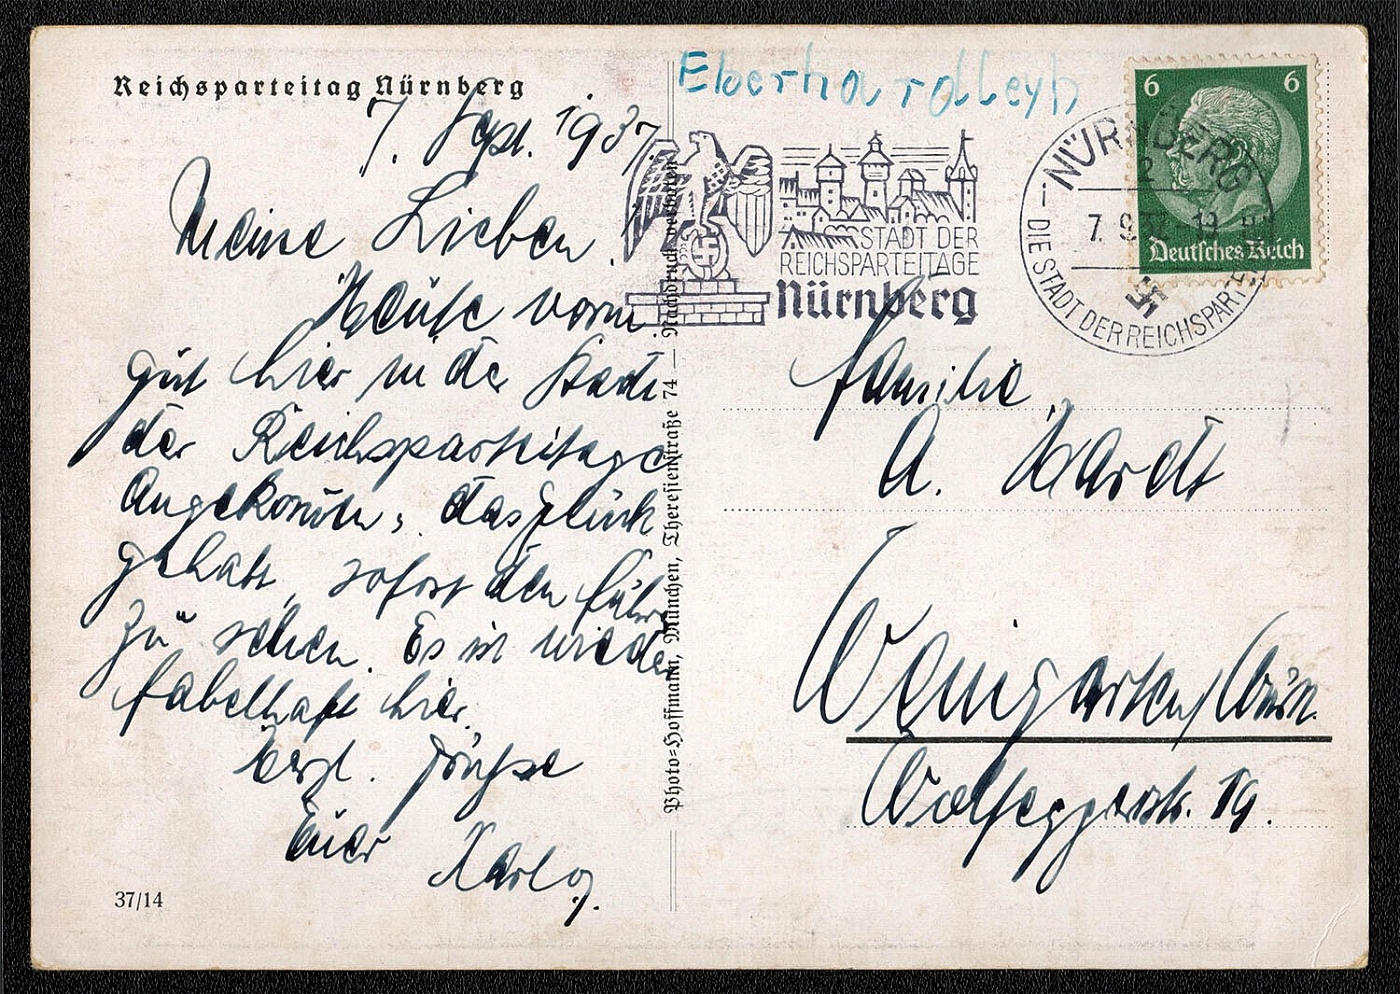 Reichsparteitag Nürnberg
7. Sept. 1937.
Meine Lieben!
Heute vorm
gut hier in der Stadt
der Reichsparteitage
angekommen, das Glück
gehabt, sofort den Führer
zu sehen. Es ist wieder
fabelhaft hier.
Herzl. Grüsse
Euer Karl
37/14
Photo-Hoffmann, München, Theresienstraße 74 — Nachdruck verboten
Eberhardlleyh
STADT DER
REICHSPARTEITAGE
Nürnberg
NÜRNBERG
2
7. 9. 37. 19
DIE STADT DER REICHSPARTEITAGE
6 6
Deutsches Reich
Familie
A. Hardt
Weingarten/Würt.
Wolfeggerstr. 19.